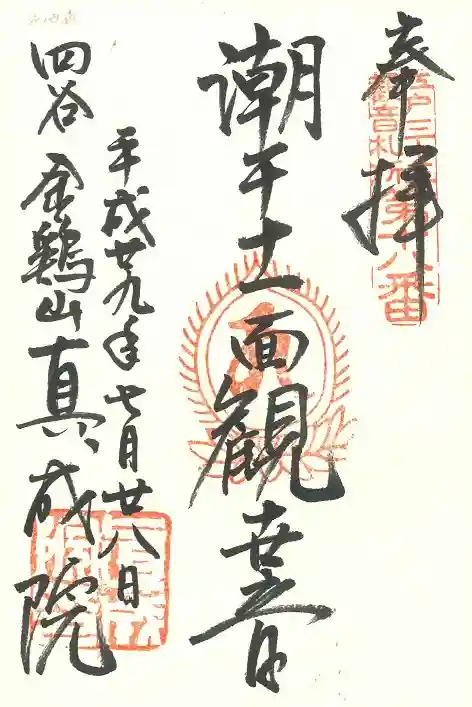 奉拝
江戸三十三所第十八番
観音札所
潮干十一面観音
平成廿九年七月廿八日
四谷 金鶏山真成院